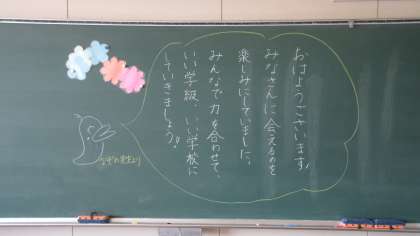 おはようございます。
みなさんに会えるのを
楽しみにしていました。
みんなで力を合わせて、
いい学級、いい学校に
していきましょう!!
なぞの先生より